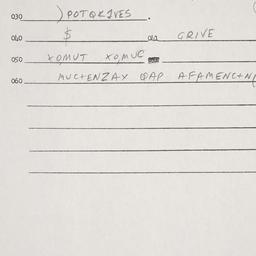 030 )POTQKIVES.
040 $ ala GRIVE
050 XOMUT XO,MUC
060 MUC+ENZAX QAP AFAMENC+N